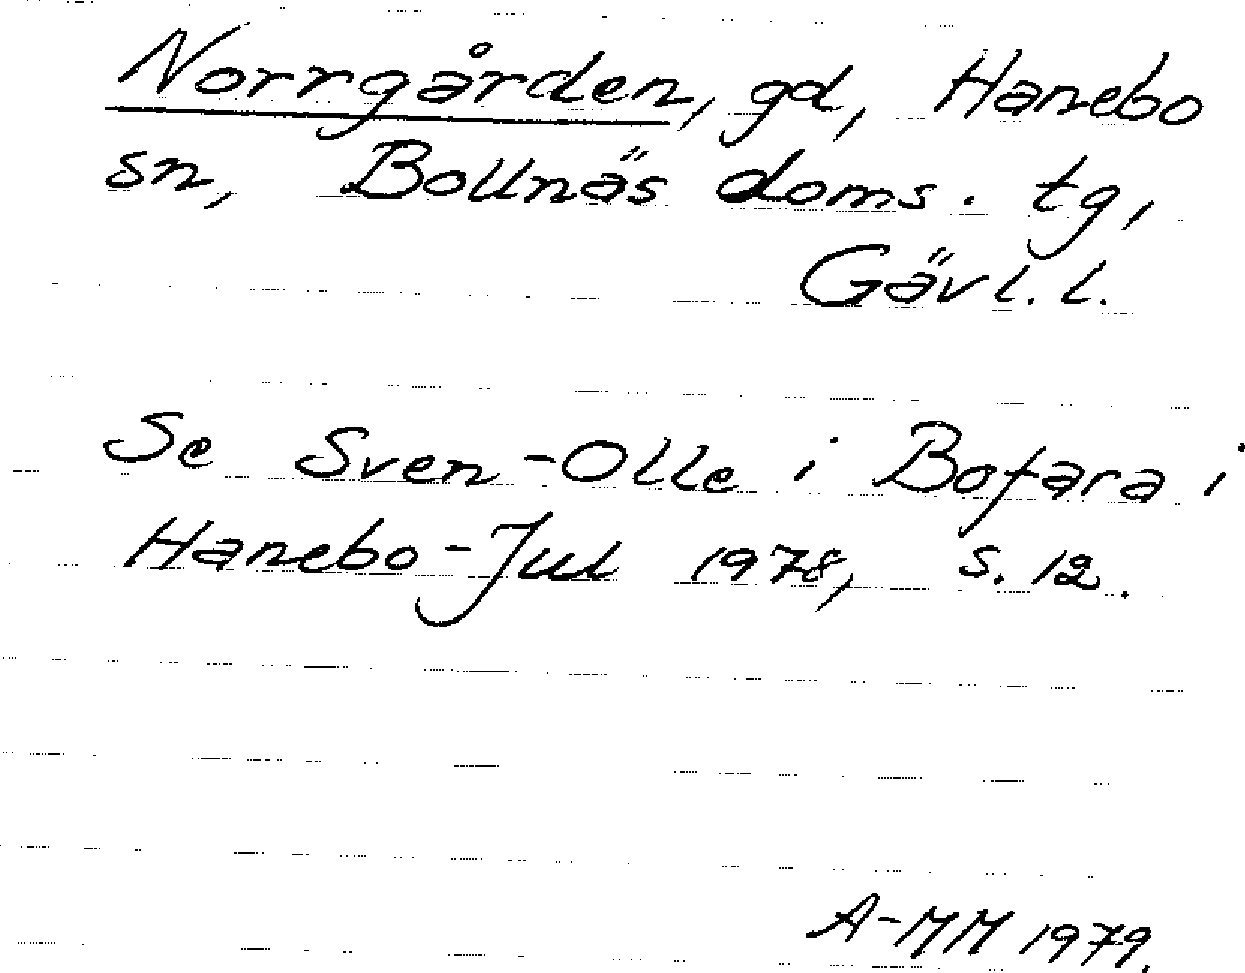 Norrgården, gd, Hanebo
sn, Bollnäs doms. tg,
Gävl. l.
Se Sven-Olle i Bofara i
Hanebo-Jul 1978, s. 12.
A-MM 1979.